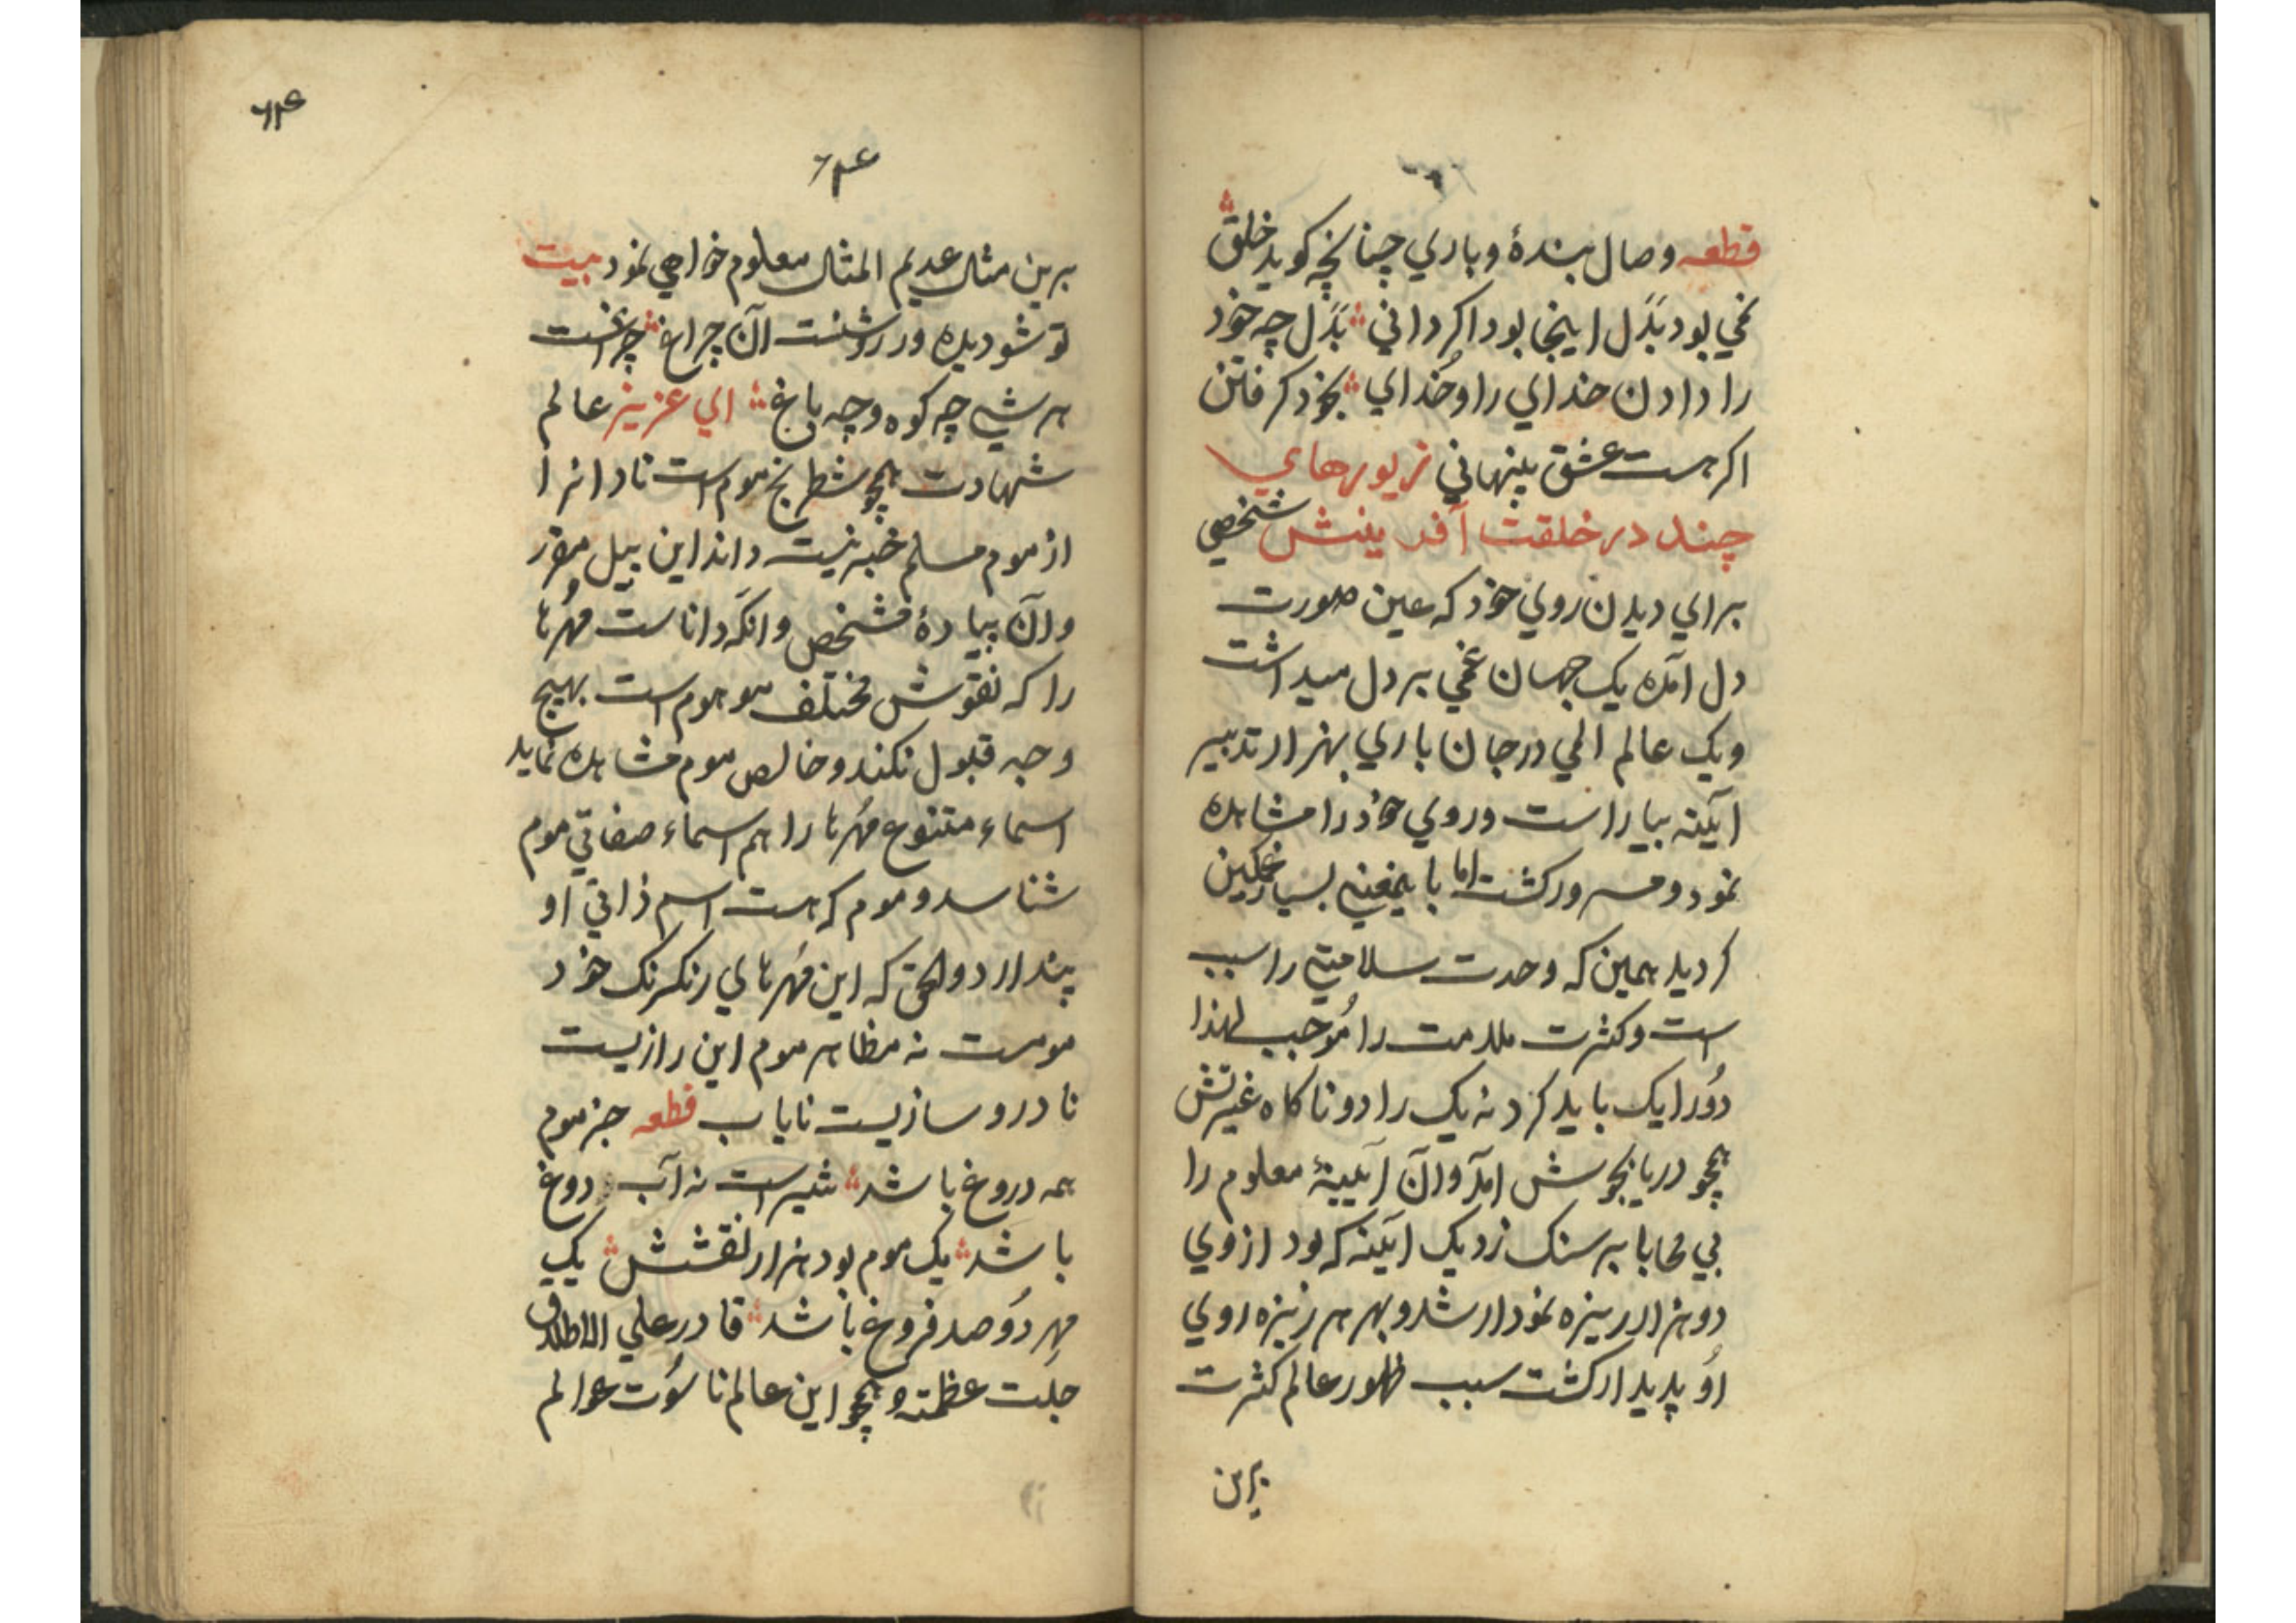 قطعه وصال بندهٔ و باري چنانچه كويد خلق
نمي بود بَدَل اينجا بود اكر داني بَدَل چه خود
را دادن خداي را و خُداي بخود كرفتن
اكر هست عشق پنهاني زيورهاي
چند در خلقت آفرينش شخصي
براي ديدن روي خود كه عين صورت
دل آمده يك جهان غمي بر دل ميداشت
و يك عالم المي در جان باري بهزار تدبير
آئينه بياراست و روي خود را مشاهده
نمود و مسرور كشت اما باينمعني بسيار غمكين
كرديد همين كه وحدت سلامتي را سبب
است و كثرت ملامت را مُوجب لهذا
دُو را يك بايد كرد نه يك را دو ناكاه غيرتش
همچو دريا بجوش آمد و آن آيينهٔ معلوم را
بي محابا بر سنك زد يك آيينه كه بود از وي
دو هزار ريزه نمودار شد و بهر هر ريزه روي
اوُ پديدار كشت سبب ظهور عالم كثرت
برين
٦٤
٦٤
برين مثال عديم المثال معلوم خواهي نمود بيت
تو شو ديده ور روشنست آن چراغ چراغست
هر شي چه كوه و چه باغ اي عزيز عالم
شهادت همچو شطرنج موم است نادانرا
از موم مسلم خبر نيست داند اين پيل مقرر
و آن پيادهٔ مشخص و آنكه داناست مُهرها
را كه نقوش مختلف موهوم است بهيچ
وجه قبول نكند و خالص موم مشاهده نمايد
اسماء متنوع مُهرها را هم اسماء صفاتي موم
شناسد و موم كه هست اسم ذاتي او
پندارد و الحق كه اين مُهرهاي رنكرنك خود
مومست نه مظاهر موم اين رازيست
نادر و سازيست ناياب قطعه جز موم
همه دروغ باشد شير است نه آب دوغ
باشد يك موم بود هزار نقشش يك
مهر دُو صد فروغ باشد قادر علي الاطلاق
جلت عظمته و همچو اين عالم ناسُوت عوالم